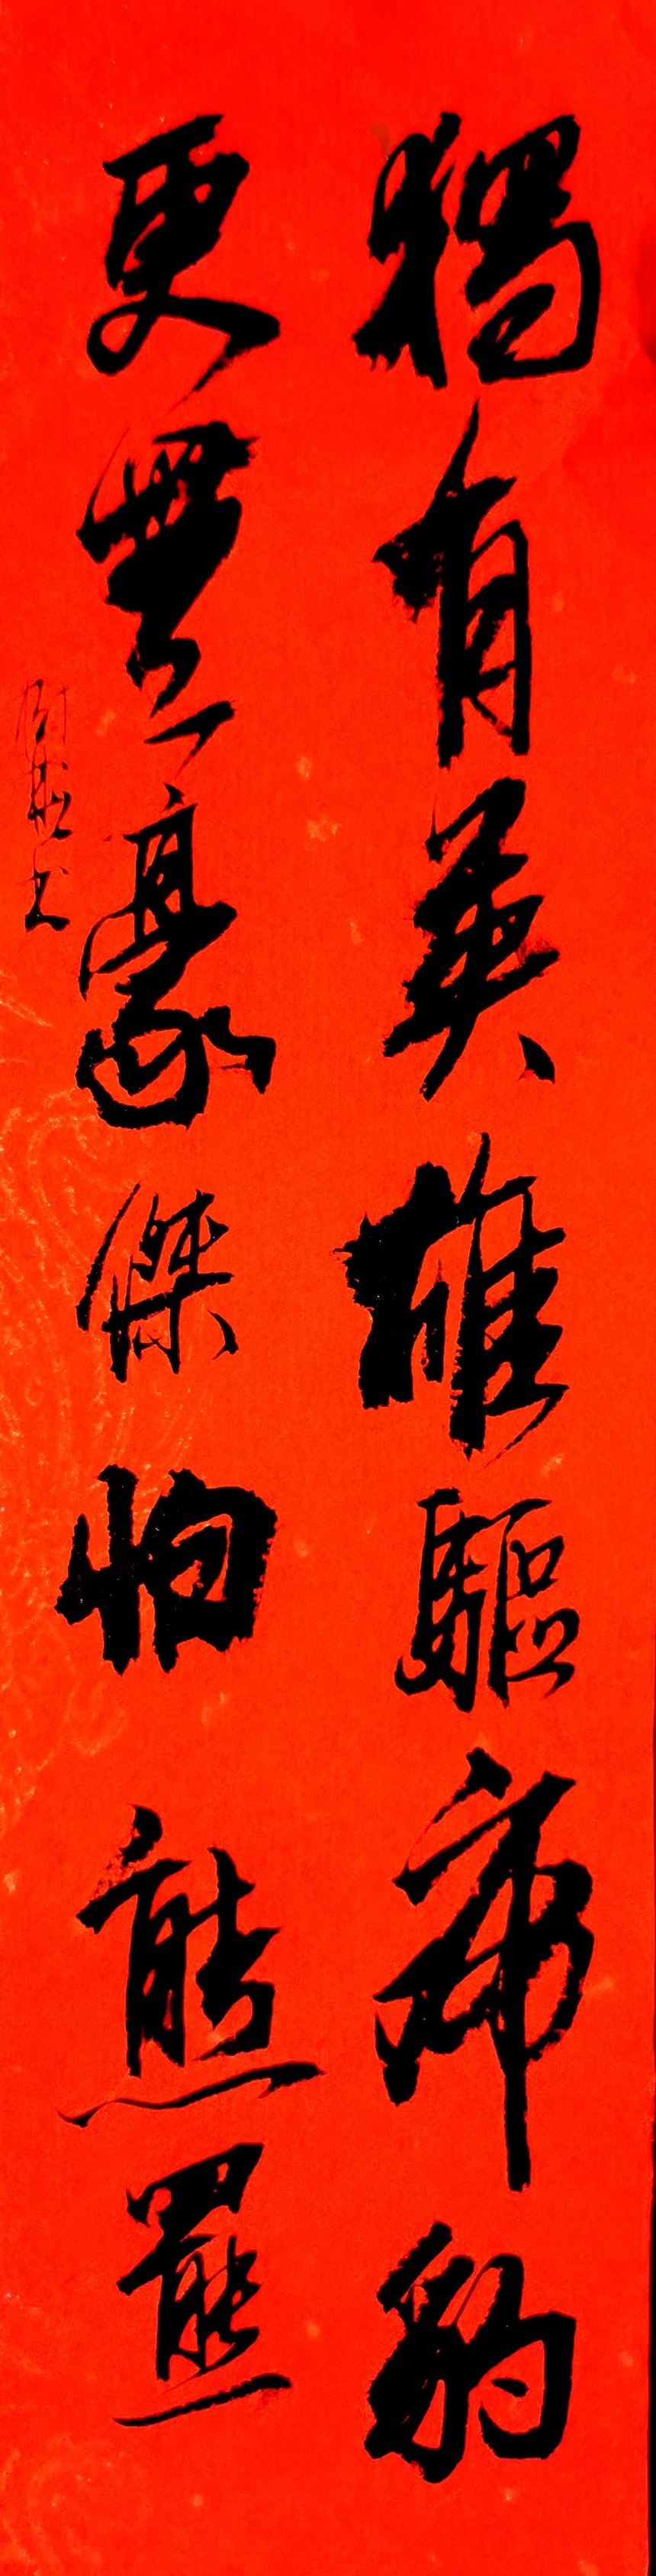 獨有英雄驅虎豹
更無豪傑怕熊羆